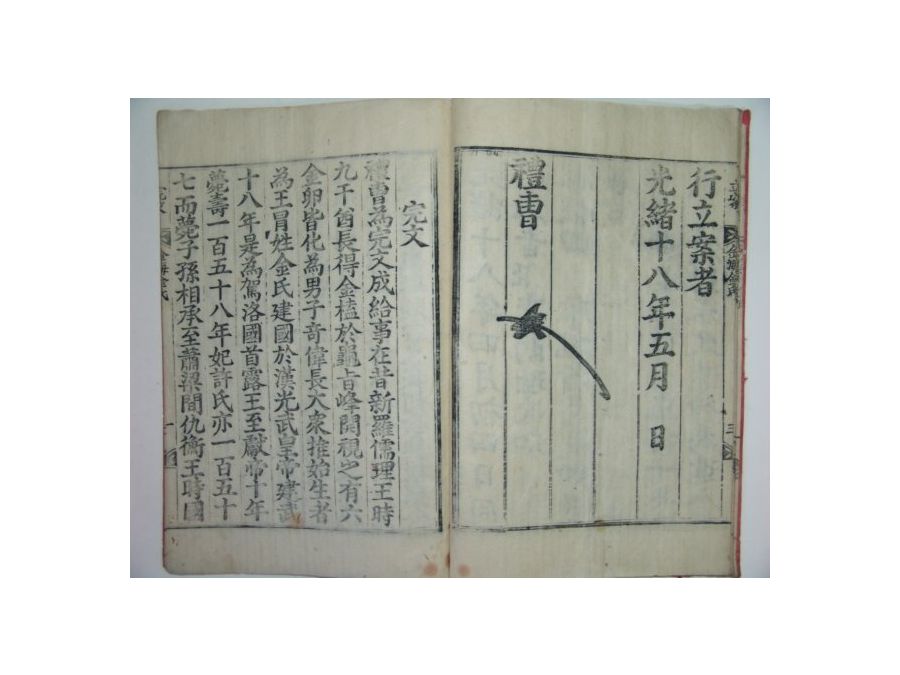 行立案者
光緒十八年五月　日
禮曹
完文
禮曹為完文成給事在昔新羅儒理王時
九干酋長得金榼於龜旨峰開視之有六
金卵皆化為男子奇偉長大衆推始生者
為王冒姓金氏建國於漢光武皇帝建武
十八年是為駕洛國首露王至獻帝十年
薨壽一百五十八年妃許氏亦一百五十
七而薨子孫相承至蕭梁間仇衡王時國